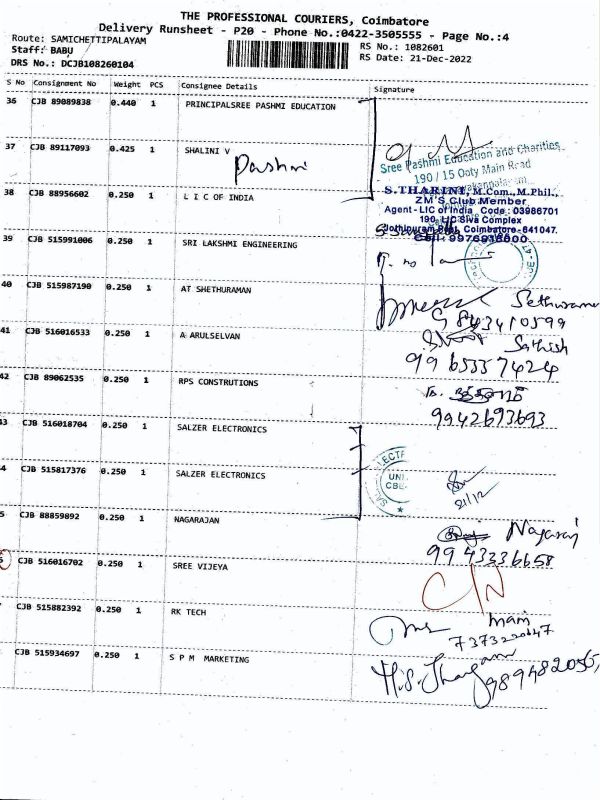 THE PROFESSIONAL COURIERS, Coimbatore
Delivery Runsheet - P20 - Phone No.:0422-3505555 - Page No.:4
Route: SAMICHETTIPALAYAM
RS No.: 1082601
Staff: BABU
RS Date: 21-Dec-2022
DRS No.: DCJB108260104
S No Consignment No Weight PCS Consignee Details Signature
36 CJB 89089838 0.440 1 PRINCIPALSREE PASHMI EDUCATION
37 CJB 89117093 0.425 1 SHALINI V
Sree Pashmi Education and Charities
190 / 15 Ooty Main Road
38 CJB 88956602 0.250 1 L I C OF INDIA
S.THARINI, M.Com., M.Phil.,
ZM'S Club Member
Agent - LIC of India Code: 03986701
190, LIC Siva Complex
Jothipuram Post, Coimbatore-641047.
Cell: 9976916000
39 CJB 515991006 0.250 1 SRI LAKSHMI ENGINEERING
40 CJB 515987190 0.250 1 AT SHETHURAMAN
Sethurama
9843410599
41 CJB 516016533 0.250 1 A ARULSELVAN
Sathish
9965337424
42 CJB 89062535 0.250 1 RPS CONSTRUTIONS
9942693693
43 CJB 516018704 0.250 1 SALZER ELECTRONICS
4 CJB 515817376 0.250 1 SALZER ELECTRONICS
21/12
5 CJB 88859892 0.250 1 NAGARAJAN
Nagaraj
9943336658
6 CJB 516016702 0.250 1 SREE VIJEYA
CJB 515882392 0.250 1 RK TECH
Mani
CJB 515934697 0.250 1 S P M MARKETING